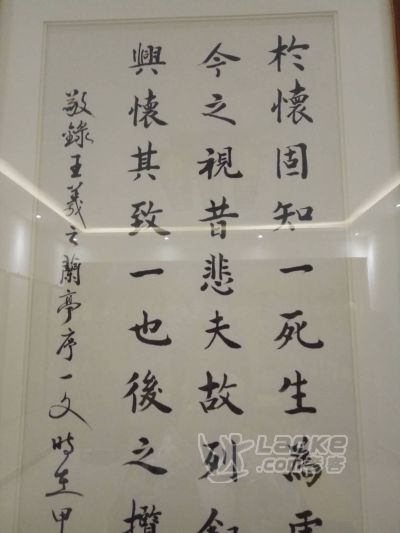 於懷固知一死生為虛
今之視昔悲夫故列敘
興懷其致一也後之攬
敬錄王羲之蘭亭序一文時在甲
Lanke
.com 览客